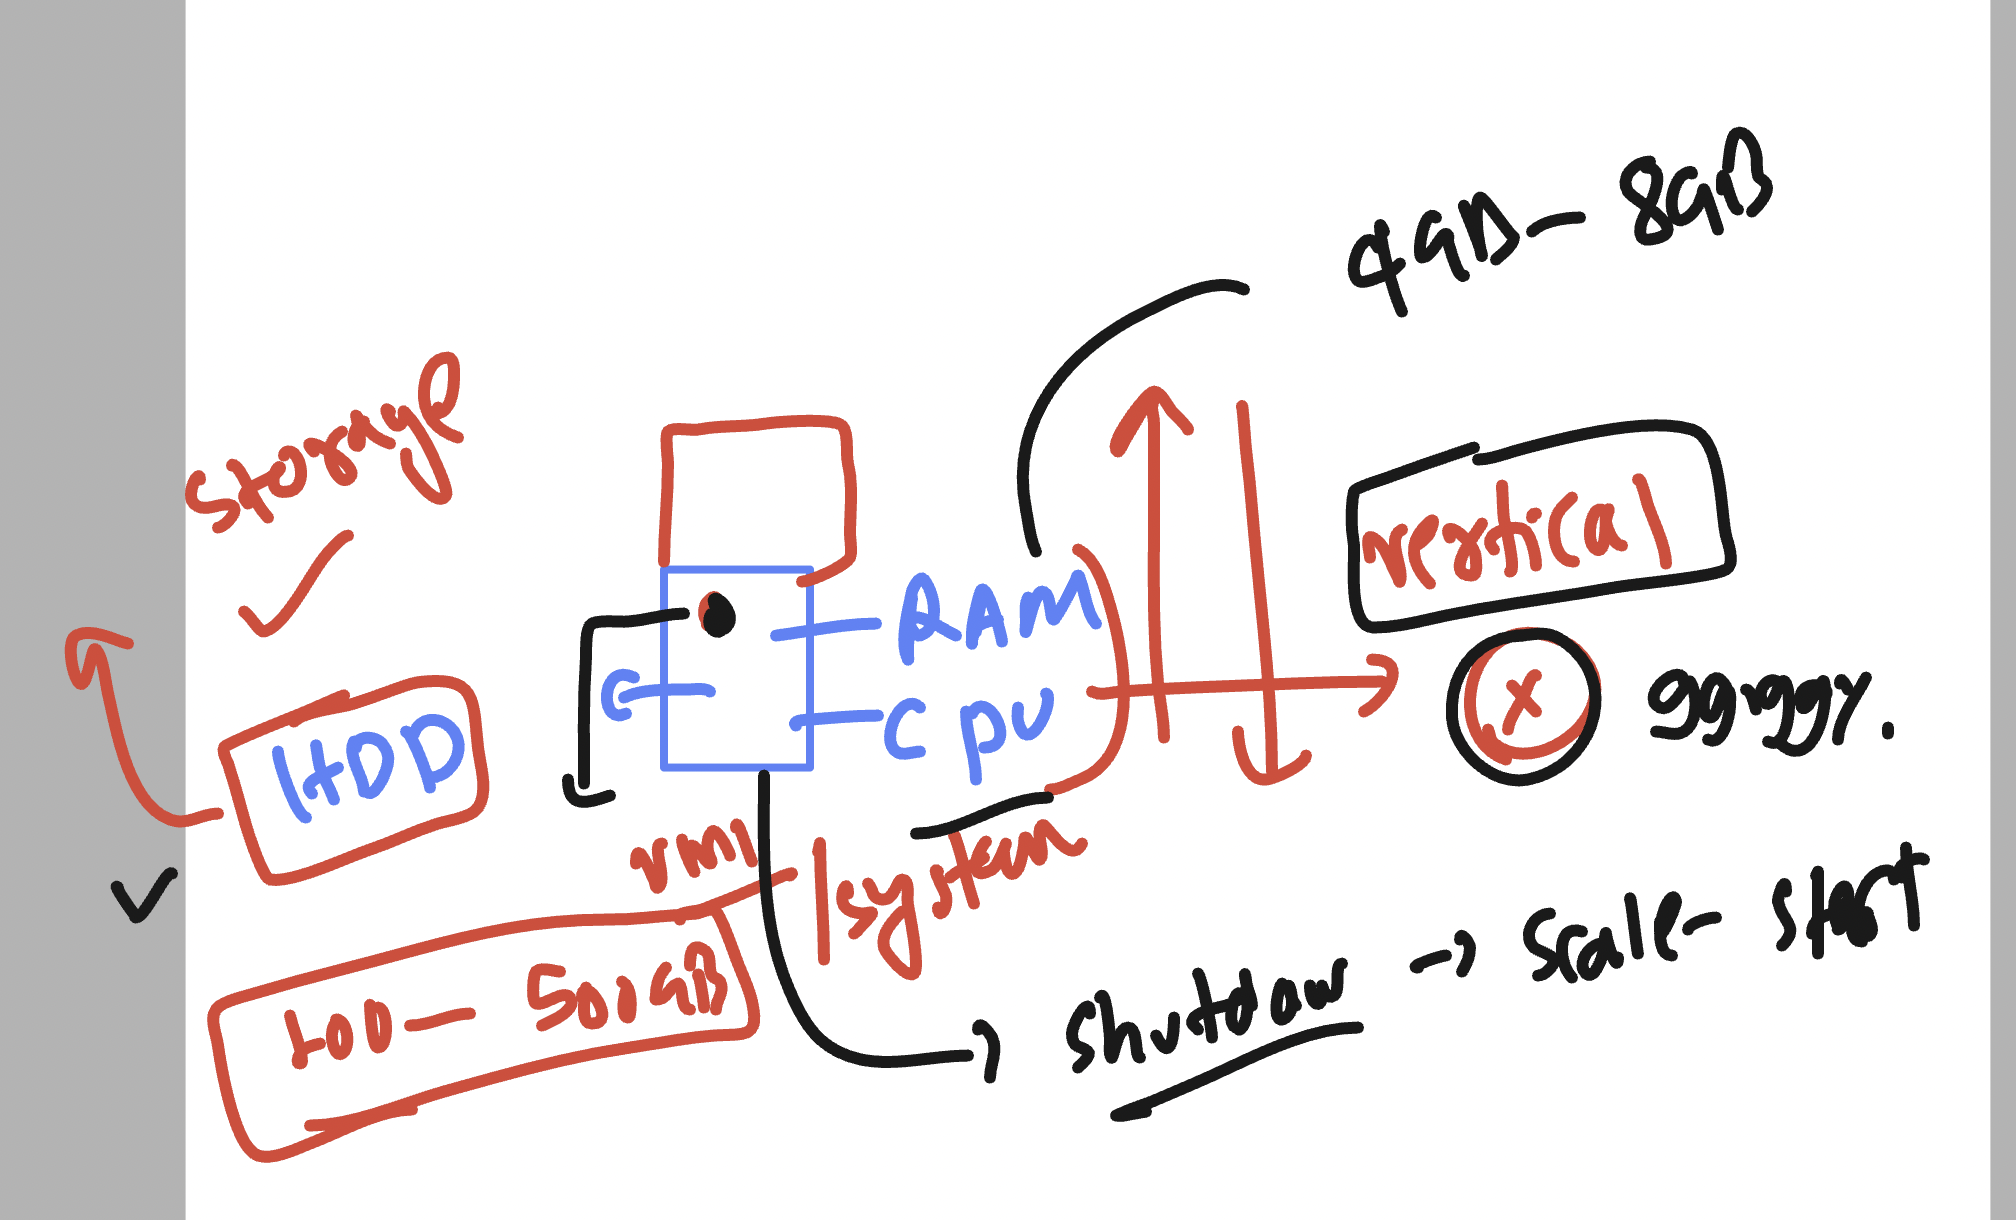 4GB - 8GB
storage
vertical
RAM
C
CPU
HDD
x
99.99%.
vm1
/system
100 - 500GB
shutdow → scale - start